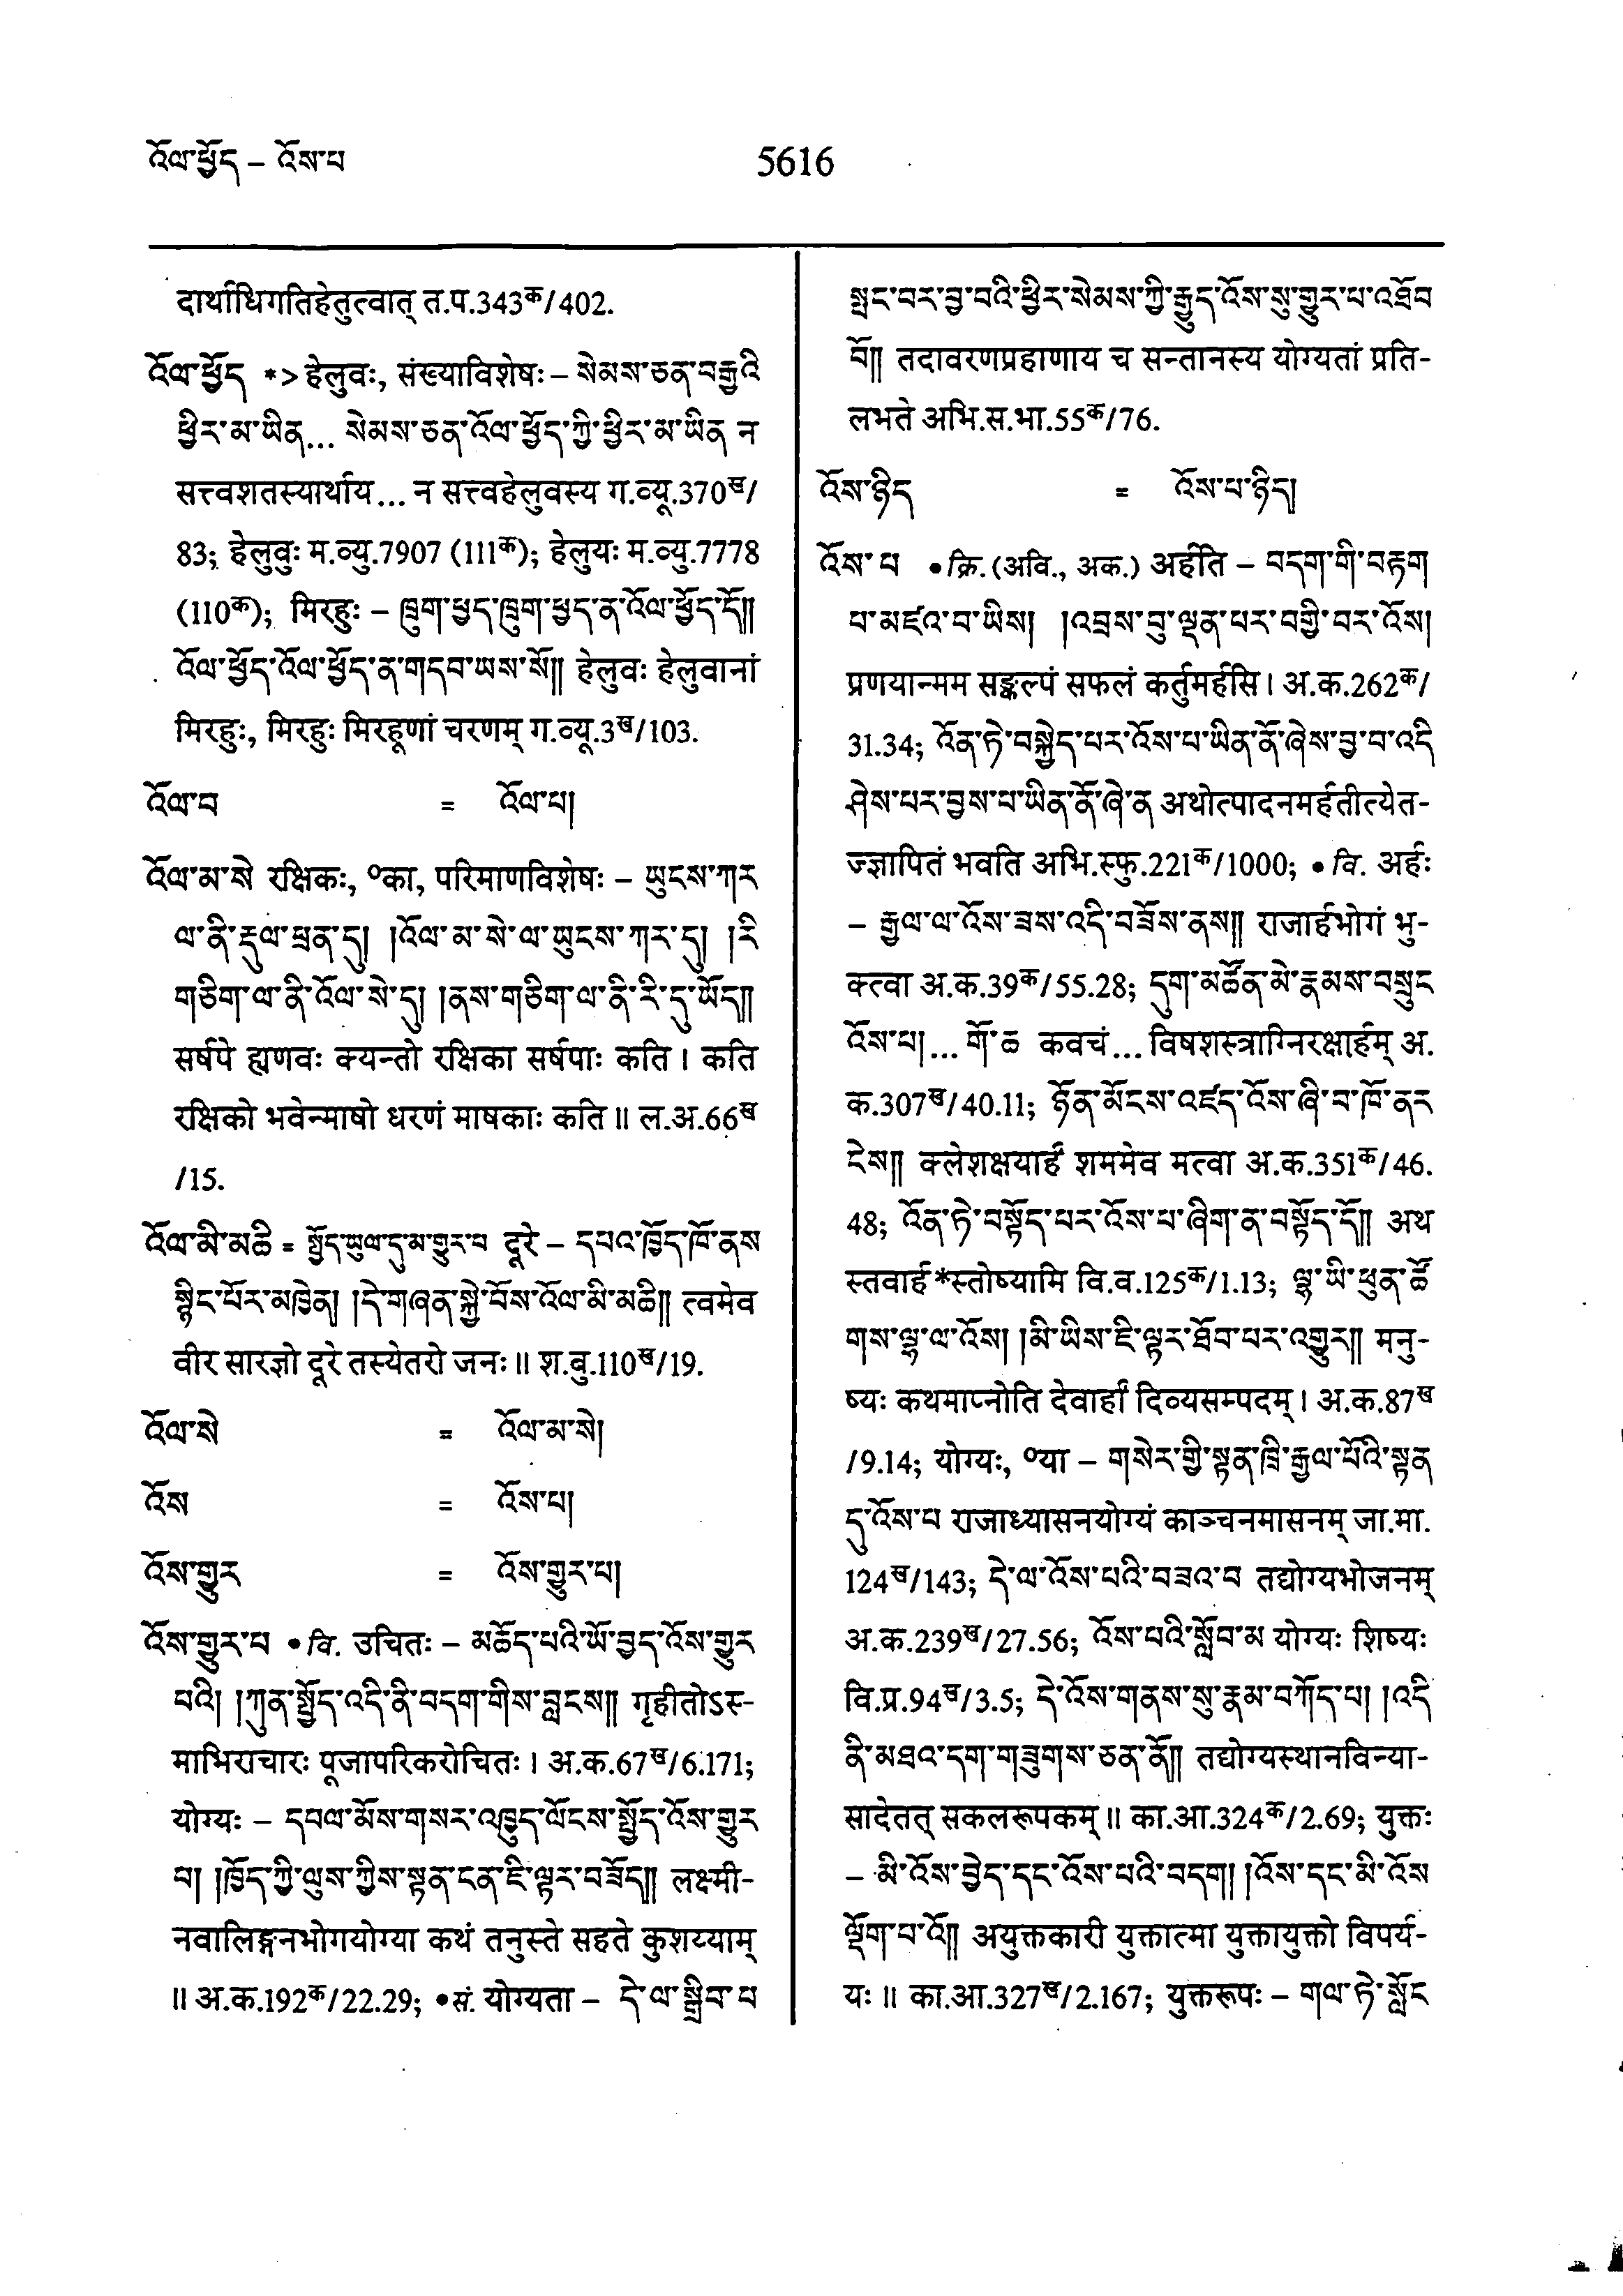 འོལ་ཕྱོད – འོས་པ
5616
दार्थाधिगतिहेतुत्वात् त.प.343क/402.
འོལ་ཕྱོད *> हेलुवः, संख्याविशेषः – སེམས་ཅན་བརྒྱའི
ཕྱིར་མ་ཡིན... སེམས་ཅན་འོལ་ཕྱོད་ཀྱི་ཕྱིར་མ་ཡིན न
सत्त्वशतस्यार्थाय... न सत्त्वहेलुवस्य ग.व्यू.370ख/
83; हेलुवुः म.व्यु.7907 (111क); हेलुयः म.व्यु.7778
(110क); मिरहुः – ཁྲུག་ཕྱད་ཁྲུག་ཕྱད་ན་འོལ་ཕྱོད་དོ༎
འོལ་ཕྱོད་འོལ་ཕྱོད་ན་གདབ་ཡས་སོ༎ हेलुवः हेलुवानां
मिरहुः, मिरहुः मिरहूणां चरणम् ग.व्यू.3ख/103.
འོལ་བ = འོལ་པ།
འོལ་མ་སེ रक्षिकः, ०का, परिमाणविशेषः – ཡུངས་ཀར
ལ་ནི་རྡུལ་ཕྲན་དུ། །འོལ་མ་སེ་ལ་ཡུངས་ཀར་དུ། །རི
གཅིག་ལ་ནི་འོལ་སེ་དུ། །ནས་གཅིག་ལ་ནི་རི་དུ་ཡོད༎
सर्षपे ह्यणवः क्यन्तो रक्षिका सर्षपाः कति । कति
रक्षिको भवेन्माषो धरणं माषकाः कति ॥ ल.अ.66ख
/15.
འོལ་མི་མཆི = སྤྱོད་ཡུལ་དུ་མ་གྱུར་པ दूरे – དཔའ་ཁྱོད་ཁོ་ནས
སྙིང་པོར་མཁྱེན། །དེ་གཞན་སྐྱེ་བོས་འོལ་མི་མཆི༎ त्वमेव
वीर सारज्ञो दूरे तस्येतरो जनः ॥ श.बु.110ख/19.
འོལ་སེ = འོལ་མ་སེ།
འོས = འོས་པ།
འོས་གྱུར = འོས་གྱུར་པ།
འོས་གྱུར་པ • वि. उचितः – མཆོད་པའི་ཡོ་བྱད་འོས་གྱུར
པའི། །ཀུན་སྤྱོད་འདི་ནི་བདག་གིས་བླངས༎ गृहीतोऽस्-
माभिराचारः पूजापरिकरोचितः । अ.क.67ख/6.171;
योग्यः – དཔལ་མོས་གསར་འཁྱུད་ལོངས་སྤྱོད་འོས་གྱུར
པ། །ཁྱོད་ཀྱི་ལུས་ཀྱིས་སྟན་ངན་ཇི་ལྟར་བཟོད༎ लक्ष्मी-
नवालिङ्गनभोगयोग्या कथं तनुस्ते सहते कुशय्याम्
॥ अ.क.192क/22.29; • सं. योग्यता – དེ་ལ་སྒྲིབ་པ
སྤང་བར་བྱ་བའི་ཕྱིར་སེམས་ཀྱི་རྒྱུད་འོས་སུ་གྱུར་པ་འཐོབ
བོ༎ तदावरणप्रहाणाय च सन्तानस्य योग्यतां प्रति-
लभते अभि.स.भा.55क/76.
འོས་ཉིད = འོས་པ་ཉིད།
འོས་པ • क्रि. (अवि., अक.) अर्हति – བདག་གི་བརྟག
པ་མཛའ་བ་ཡིས། །འབྲས་བུ་ལྡན་པར་བགྱི་བར་འོས།
प्रणयान्मम सङ्कल्पं सफलं कर्तुमर्हसि । अ.क.262क/
31.34; འོན་ཏེ་བསྐྱེད་པར་འོས་པ་ཡིན་ནོ་ཞེས་བྱ་བ་འདི
ཤེས་པར་བྱས་པ་ཡིན་ནོ་ཞེ་ན अथोत्पादनमर्हतीत्येत-
ज्ज्ञापितं भवति अभि.स्फु.221क/1000; • वि. अर्हः
– རྒྱལ་ལ་འོས་ཟས་འདི་བཟོས་ནས༎ राजार्हभोगं भु-
क्त्वा अ.क.39क/55.28; དུག་མཚོན་མེ་རྣམས་བསྲུང
འོས་པ།... གོ་ཆ कवचं... विषशस्त्राग्निरक्षार्हम् अ.
क.307ख/40.11; ཉོན་མོངས་འཛད་འོས་ཞི་བ་ཁོ་ནར
ངེས༎ क्लेशक्षयार्हं शममेव मत्वा अ.क.351क/46.
48; འོན་ཏེ་བསྟོད་པར་འོས་པ་ཞིག་ན་བསྟོད་དོ༎ अथ
स्तवार्ह*स्तोष्यामि वि.व.125क/1.13; ལྷ་ཡི་ཕུན་ཚོ
གས་ལྷ་ལ་འོས། །མི་ཡིས་ཇི་ལྟར་ཐོབ་པར་འགྱུར༎ मनु-
ष्यः कथमाप्नोति देवार्हां दिव्यसम्पदम् । अ.क.87ख
/9.14; योग्यः, ०या – གསེར་གྱི་སྟན་ཁྲི་རྒྱལ་པོའི་སྟན
དུ་འོས་པ राजाध्यासनयोग्यं काञ्चनमासनम् जा.मा.
124ख/143; དེ་ལ་འོས་པའི་བཟའ་བ तद्योग्यभोजनम्
अ.क.239ख/27.56; འོས་པའི་སློབ་མ योग्यः शिष्यः
वि.प्र.94ख/3.5; དེ་འོས་གནས་སུ་རྣམ་བཀོད་པ། །འདི
ནི་མཐའ་དག་གཟུགས་ཅན་ནོ༎ तद्योग्यस्थानविन्या-
सादेतत् सकलरूपकम् ॥ का.आ.324क/2.69; युक्तः
– མི་འོས་བྱེད་དང་འོས་པའི་བདག། །འོས་དང་མི་འོས
ལྡོག་པ་འོ༎ अयुक्तकारी युक्तात्मा युक्तायुक्तो विपर्य-
यः ॥ का.आ.327ख/2.167; युक्तरूपः – གལ་ཏེ་སློང